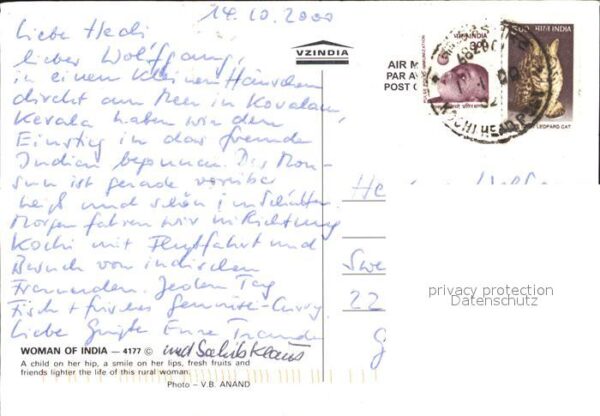 14.10.2000
Liebe Hedi
lieber Wolfgang,
in einem kleinen Häuschen
direkt am Meer in Kovalam,
Kerala haben wir den
Einstieg in das fremde
Indien begonnen. Der Mon-
sun ist gerade vorüber
heiß und schön im Schatten.
Morgen fahren wir in Richtung
Kochi mit Flußfahrt und
Besuch von indischen
Freunden. Jeden Tag
Fisch + frisches Gemüse-Curry.
Liebe Grüße Eure
und Sahib Klaus
WOMAN OF INDIA — 4177 ©
A child on her hip, a smile on her lips, fresh fruits and
friends lighter the life of this rural woman.
Photo – V.B. ANAND
VZINDIA
AIR M
PAR A
POST C
भारत INDIA
LEOPARD CAT
KOCHI HEAD P
22
privacy protection
Datenschutz